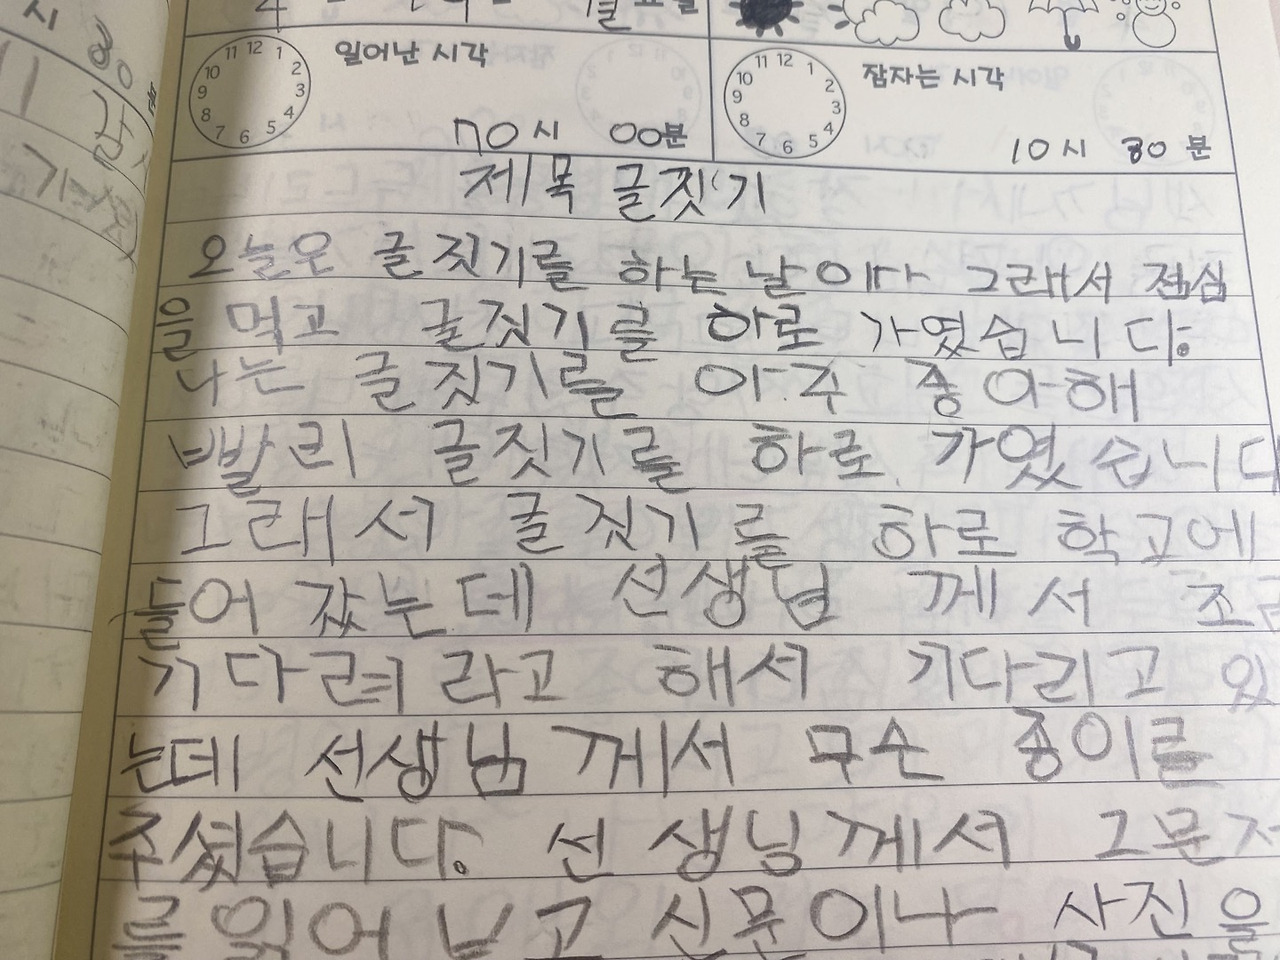 일어난 시각 잠자는 시각
70시 00분 10시 30분
제목 글짓기
오늘은 글짓기를 하는 날이다 그래서 점심
을 먹고 글짓기를 하로 가였습니다.
나는 글짓기를 아주 종아해
빨리 글짓기를 하로 가였습니다
그래서 글짓기를 하로 학교에
들어 갔는데 선생님 께서 조금
기다려 라고 해서 기다리고 있
는데 선생님 께서 무슨 종이를
주셨습니다. 선생닝께서 그문저
를 읽어 보고 신문이나 사진을